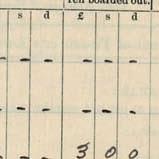 ren boarded out.
s d £ s d
- - - - -
- - - - -
- - 3 0 0